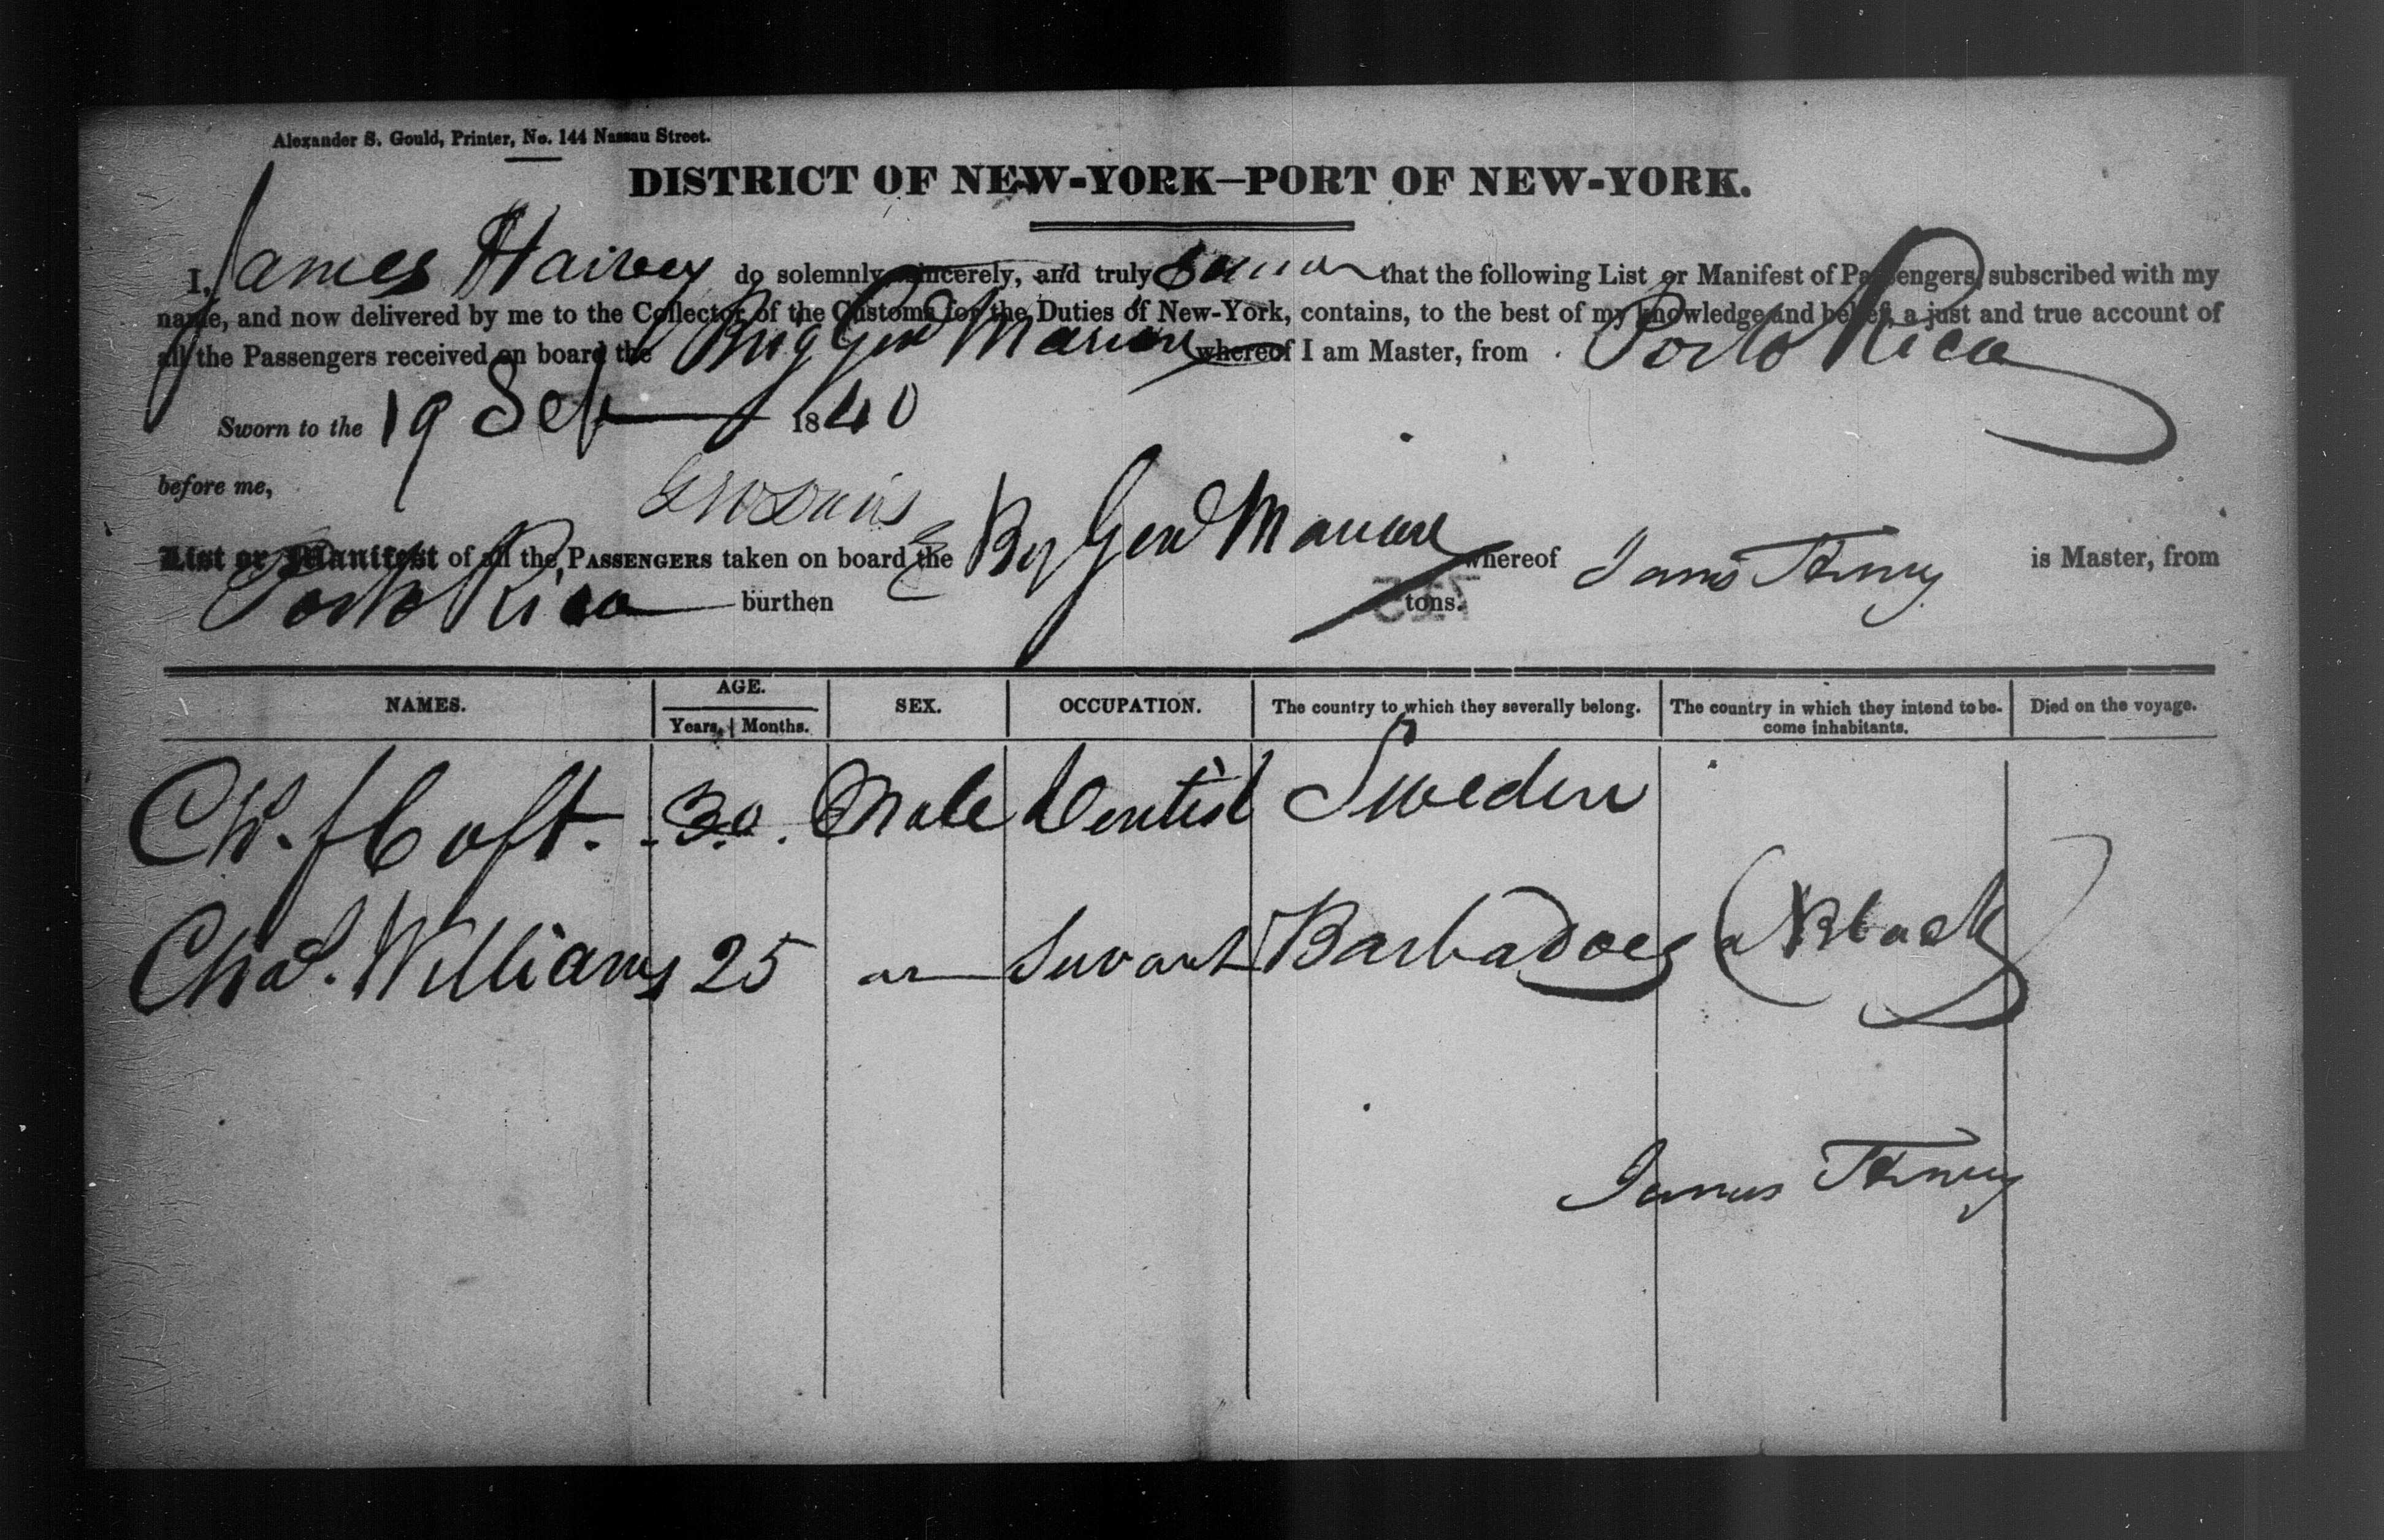 Alexander S. Gould, Printer, No. 144 Nassau Street.
DISTRICT OF NEW-YORK—PORT OF NEW-YORK.
I, James do solemnly, sincerely, and truly that the following List or Manifest of Passengers, subscribed with my
name, and now delivered by me to the Collector of the Customs for the Duties of New-York, contains, to the best of my knowledge and belief, a just and true account of
all the Passengers received on board the Brig Genl Marion whereof I am Master, from Porto Rico
Sworn to the 19 Sep 1840
before me,
List or Manifest of all the PASSENGERS taken on board the Brg Genl Marion whereof James is Master, from
Porto Rico burthen tons.
NAMES. AGE. Years. Months. SEX. OCCUPATION. The country to which they severally belong. The country in which they intend to be-come inhabitants. Died on the voyage.
30 Male Dentist Sweden
Chas. Williams 25 Servant Barbadoes (a Black)
James